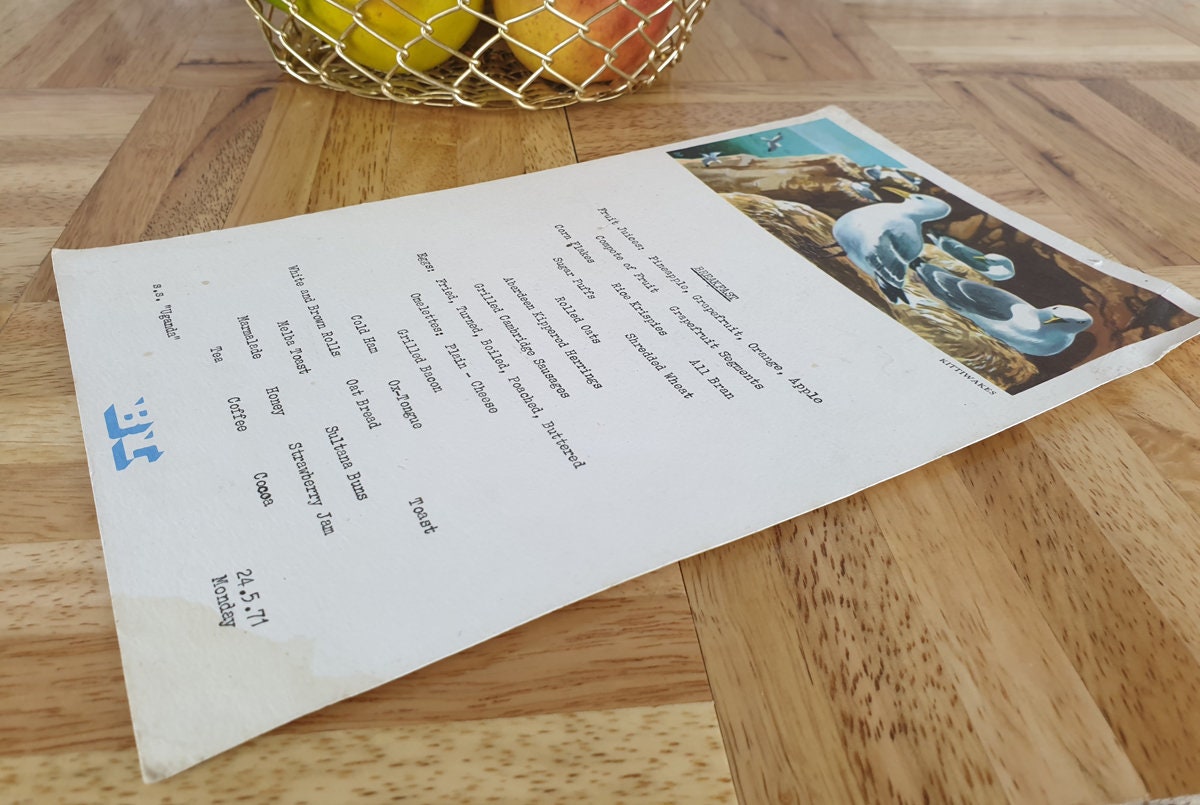 KITTIWAKES
BREAKFAST
Fruit Juices: Pineapple, Grapefruit, Orange, Apple
Compote of Fruit Grapefruit Segments
Corn Flakes Rice Krispies All Bran
Sugar Puffs Shredded Wheat
Rolled Oats
Aberdeen Kippered Herrings
Grilled Cambridge Sausages
Eggs: Fried, Turned, Boiled, Poached, Buttered
Omelettes: Plain - Cheese
Grilled Bacon
Cold Ham Ox-Tongue
White and Brown Rolls Oat Bread Toast
Melba Toast Sultana Buns
Marmalade Honey Strawberry Jam
Tea Coffee Cocoa
s.s. "Uganda" 24.5.71
Monday